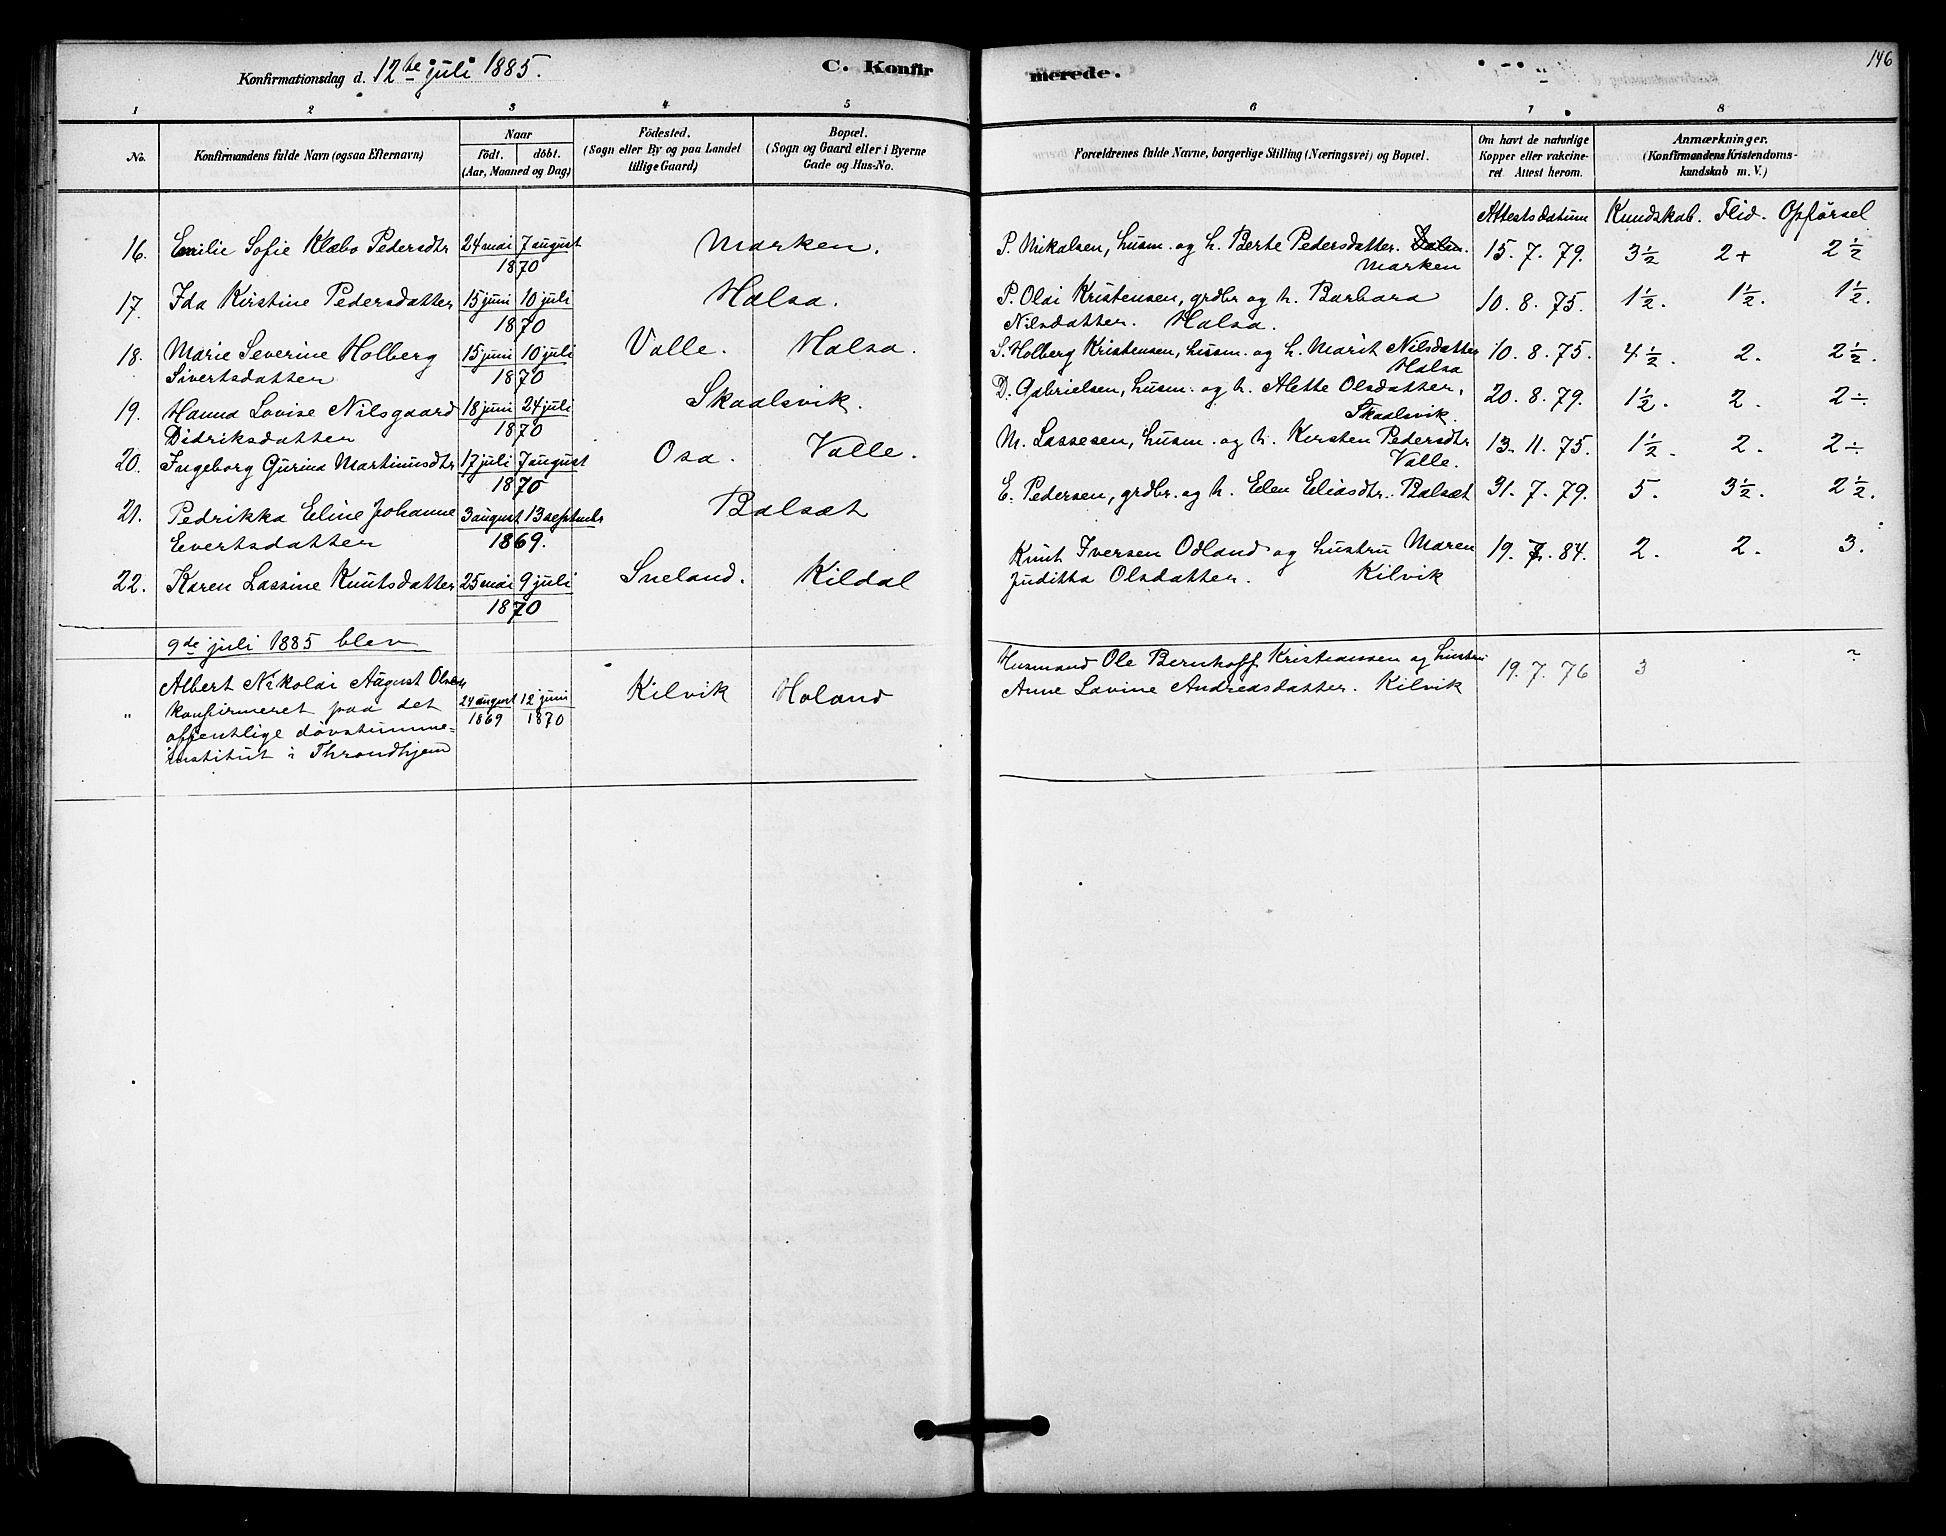 Konfirmationsdag d. 12te juli 1885.
C. Konfirmerede.
146
1 2 3 4 5 6 7 8
No.
Konfirmandens fulde Navn (ogsaa Efternavn)
Naar
födt. döbt.
(Aar, Maaned og Dag)
Födested.
(Sogn eller By og paa Landet
tillige Gaard)
Bopæl.
(Sogn og Gaard eller i Byerne
Gade og Hus-No.
Forældrenes fulde Navne, borgerlige Stilling (Næringsvei) og Bopæl.
Om havt de naturlige
Kopper eller vakcine-
ret Attest herom.
Anmærkninger.
(Konfirmandens Kristendoms-
kundskab m. V.)
Attestsdatum Kundskab. Flid. Opførsel
16. Emilie Sofie Klæbo Pedersdtr 24 mai 7 august Marken. P. Nikolsen, husm. og h. Berte Pedersdatter. 15. 7. 79. 3½ 2+ 2½
1870 Marken
17. Ida Kirstine Pedersdatter 15 juni 10 juli Halsa. P. Olai Kristensen, grdbr og h. Barbara 10. 8. 75. 1½. 1½. 1½.
1870 Nilsdatter. Halsa.
18. Marie Severine Holberg 15 juni 10 juli Valle. Halsa. S. Holberg Kristensen, husm. og h. Marit Nilsdatter 10. 8. 75. 4½. 2. 2½.
Sivertsdatter 1870 Halsa
19. Hanna Lovise Nilsgaard 18 juni 24 juli Skaalsvik. D. Gabrielsen, husm. og h. Alette Olsdatter, 20. 8. 79. 1½. 2. 2÷
Didriksdatter 1870 Skaalsvik.
20. Ingeborg Gurina Martinusdtr 17 juli 7 august Osa. Valle. M. Lassesen, husm. og h. Kirsten Pedersdtr 13. 11. 75. 1½. 2. 2÷
1870 Valle.
21. Pedrikka Eline Johanne 3 august 13 septembr Balsæt E. Pedersen, grdbr. og h. Elen Eliasdtr. Balsæt 31. 7. 79. 5. 3½. 2½.
Evertsdatter 1869.
22. Karen Lassine Knutsdatter 25 mai 9 juli Sneland. Kildal Knut Iversen Odland og hustru Maren 19. 7. 84. 2. 2. 3.
1870 Juditha Olsdatter. Kilvik
9de juli 1885 blev
„ Albert Nikolai August Olsen 24 august 12 juni Kilvik Holand Husmand Ole Bernhoff Kristiansen og hustru 19. 7. 76 3
konfirmeret paa det 1869 1870 Anne Lovine Andreasdatter. Kilvik
offentlige døvstumme-
institut i Throndhjem